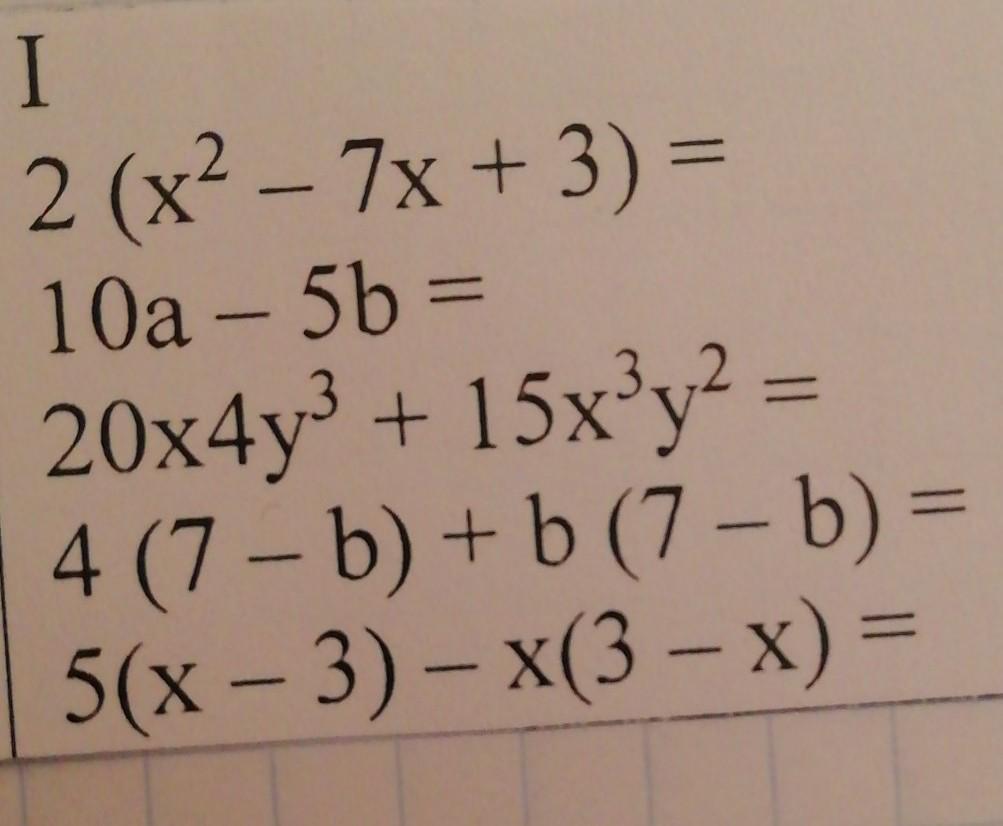 I
2 (x² – 7x + 3) =
10a – 5b =
20x4y³ + 15x³y² =
4 (7 – b) + b (7 – b) =
5(x – 3) – x(3 – x) =